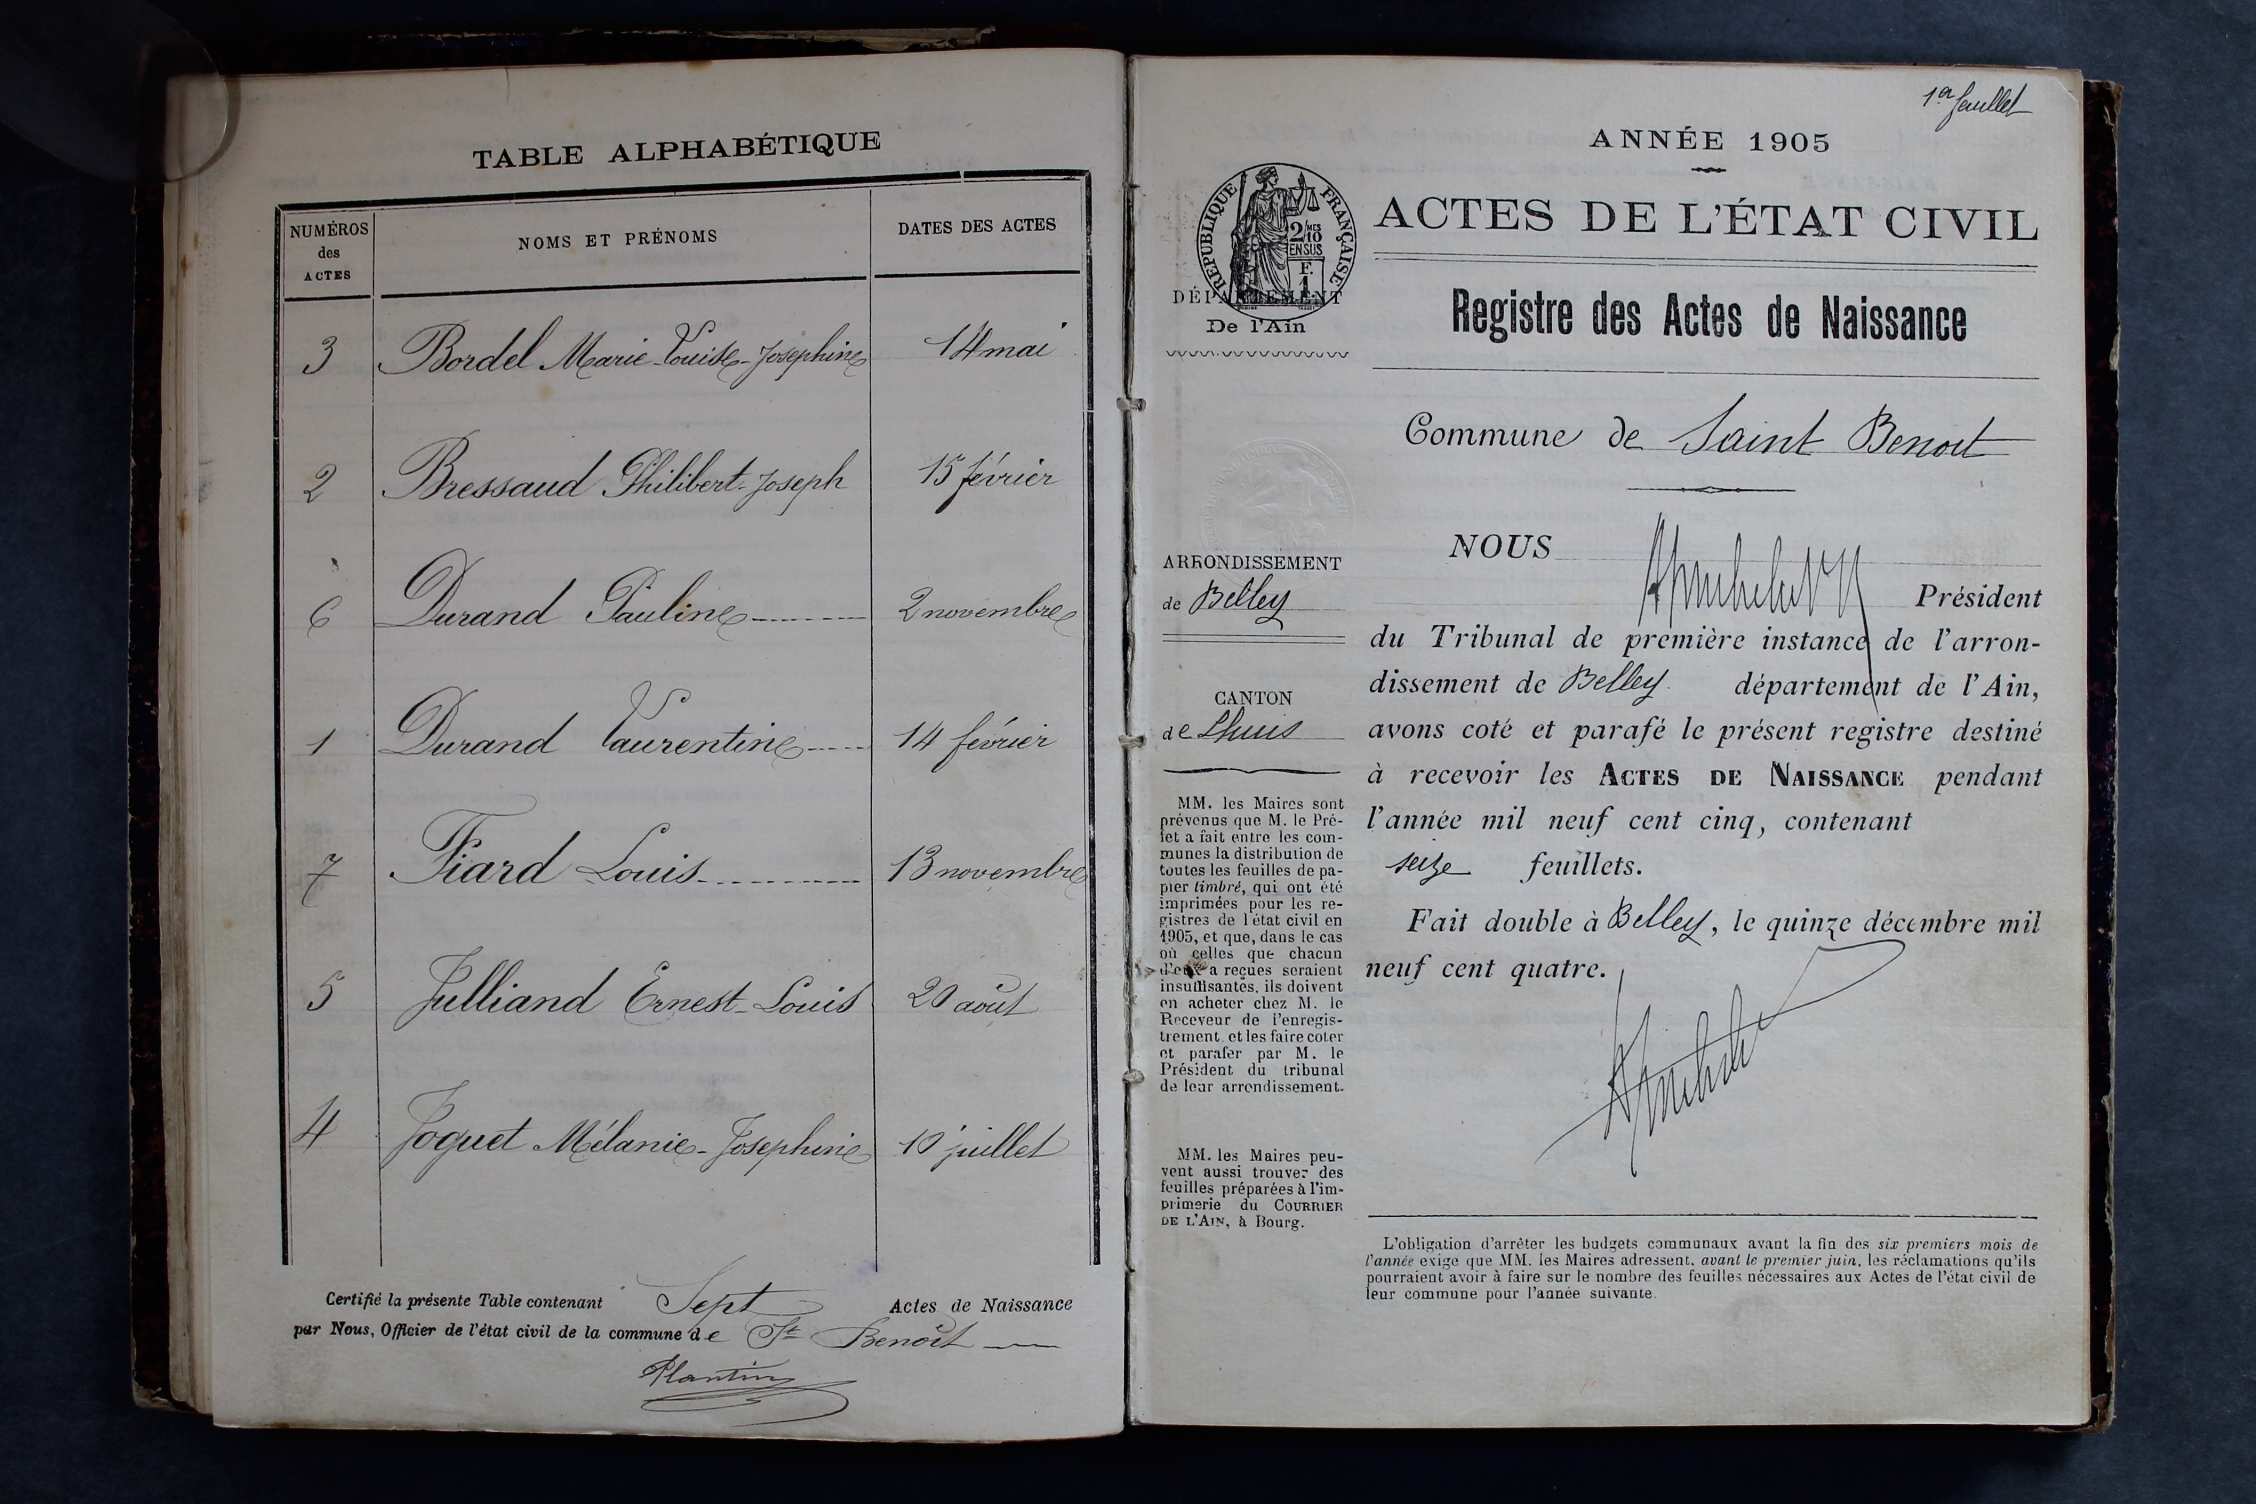 TABLE ALPHABÉTIQUE
NUMÉROS des ACTES
NOMS ET PRÉNOMS
DATES DES ACTES
3 Bordel Marie-Louise-Josephine 14 mai
2 Bressaud Philibert-Joseph 15 février
6 Durand Pauline 2 novembre
1 Durand Laurentine 14 février
7 Fiard Louis 13 novembre
5 Julliand Ernest-Louis 20 août
4 Joguet Mélanie-Josephine 10 juillet
Certifié la présente Table contenant Sept Actes de Naissance
par Nous, Officier de l'état civil de la commune de St Benoît
Plantin
1er feuillet
ANNÉE 1905
RÉPUBLIQUE FRANÇAISE
2/10MES
EN SUS
F.
1
ACTES DE L'ÉTAT CIVIL
DÉPARTEMENT
De l'Ain
Registre des Actes de Naissance
Commune de Saint Benoit
ARRONDISSEMENT
de Belley
CANTON
de Lhuis
MM. les Maires sont
prévenus que M. le Pré-
fet a fait entre les com-
munes la distribution de
toutes les feuilles de pa-
pier timbré, qui ont été
imprimées pour les re-
gistres de l'état civil en
1905, et que, dans le cas
où celles que chacun
d'eux a reçues seraient
insuffisantes, ils doivent
en acheter chez M. le
Receveur de l'enregis-
trement et les faire coter
et parafer par M. le
Président du tribunal
de leur arrondissement.
MM. les Maires peu-
vent aussi trouver des
feuilles préparées à l'im-
primerie du COURRIER
DE L'AIN, à Bourg.
NOUS
Président
du Tribunal de première instance de l'arron-
dissement de Belley département de l'Ain,
avons coté et parafé le présent registre destiné
à recevoir les ACTES DE NAISSANCE pendant
l'année mil neuf cent cinq, contenant
seize feuillets.
Fait double à Belley, le quinze décembre mil
neuf cent quatre.
L'obligation d'arrêter les budgets communaux avant la fin des six premiers mois de
l'année exige que MM. les Maires adressent, avant le premier juin, les réclamations qu'ils
pourraient avoir à faire sur le nombre des feuilles nécessaires aux Actes de l'état civil de
leur commune pour l'année suivante.